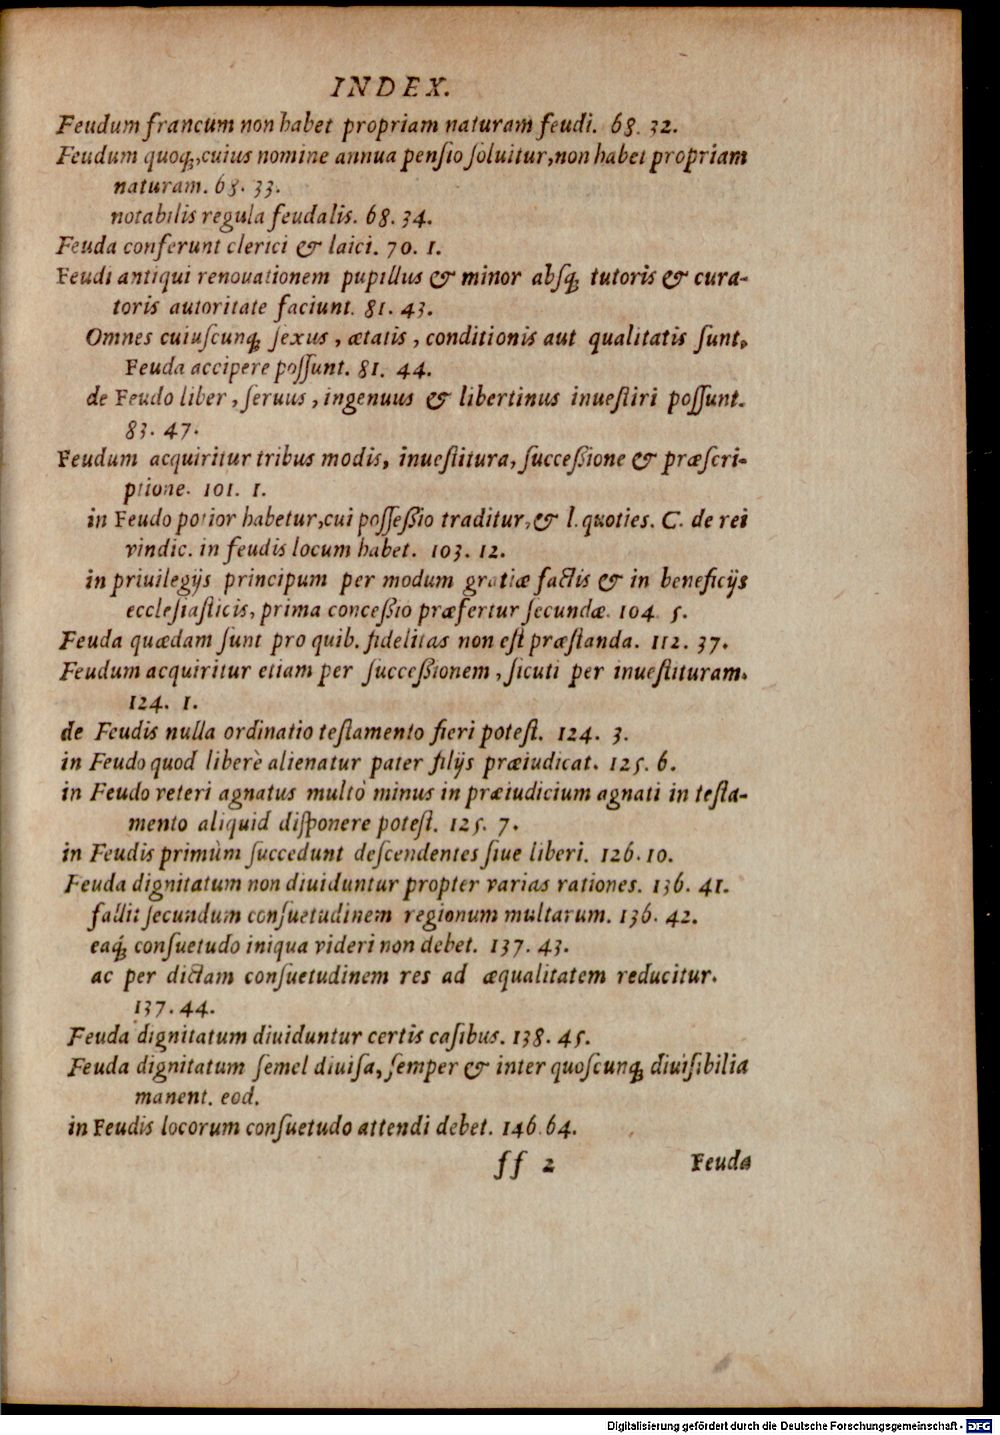 INDEX.
Feudum francum non habet propriam naturam feudi. 68. 32.
Feudum quoq;,cuius nomine annua penſio ſoluitur,non habet propriam
naturam. 68. 33.
notabilis regula feudalis. 68. 34.
Feuda conferunt clerici & laici. 70. 1.
Feudi antiqui renouationem pupillus & minor abſq; tutoris & cura-
toris autoritate faciunt. 81. 43.
Omnes cuiuſcunq; ſexus, ætatis, conditionis aut qualitatis ſunt,
Feuda accipere poſſunt. 81. 44.
de Feudo liber, ſeruus, ingenuus & libertinus inueſtiri poſſunt.
83. 47.
Feudum acquiritur tribus modis, inueſtitura, ſucceßione & præſcri-
ptione. 101. 1.
in Feudo potior habetur,cui poſſeßio traditur,& l. quoties. C. de rei
vindic. in feudis locum habet. 103. 12.
in priuilegijs principum per modum gratiæ factis & in beneficijs
eccleſiaſticis, prima conceßio præfertur ſecundæ. 104. 5.
Feuda quædam ſunt pro quib. fidelitas non eſt præſtanda. 112. 37.
Feudum acquiritur etiam per ſucceßionem, ſicuti per inueſtituram.
124. 1.
de Feudis nulla ordinatio teſtamento fieri poteſt. 124. 3.
in Feudo quod liberè alienatur pater filijs præiudicat. 125. 6.
in Feudo veteri agnatus multò minus in præiudicium agnati in teſta-
mento aliquid diſponere poteſt. 125. 7.
in Feudis primùm ſuccedunt deſcendentes ſiue liberi. 126. 10.
Feuda dignitatum non diuiduntur propter varias rationes. 136. 41.
fallit ſecundum conſuetudinem regionum multarum. 136. 42.
eaq́; conſuetudo iniqua videri non debet. 137. 43.
ac per dictam conſuetudinem res ad æqualitatem reducitur.
137. 44.
Feuda dignitatum diuiduntur certis caſibus. 138. 45.
Feuda dignitatum ſemel diuiſa, ſemper & inter quoſcunq; diuiſibilia
manent. eod.
in Feudis locorum conſuetudo attendi debet. 146. 64.
ſſ 2 Feuda
Digitalisierung gefördert durch die Deutsche Forschungsgemeinschaft - DFG